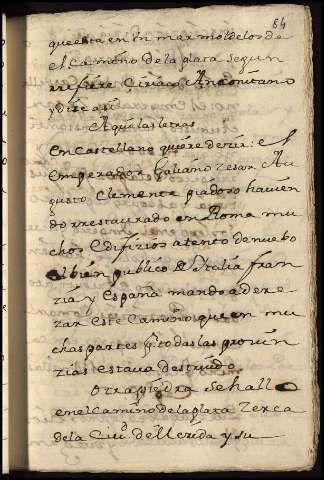 84
que esta en un marmol de los de
el Camino de la plata segun
rrefiere Çiriaco Anconitano
y dize asi
Aqui las letras
En Castellano quiere dezir: el
Emperador Galiano Zesar Au
gusto Clemente piadoso havien
do rrestaurado en Roma mu
chos Edifizios atento de nuebo
al bien publico de Ytalia fran
zia y España mando adere
zar este Camino que en mu
chas partes por todas las provin
zias estava destruido
Otra piedra se hallo
en el Camino de la plata zerca
de la Ciud. de Merida y su